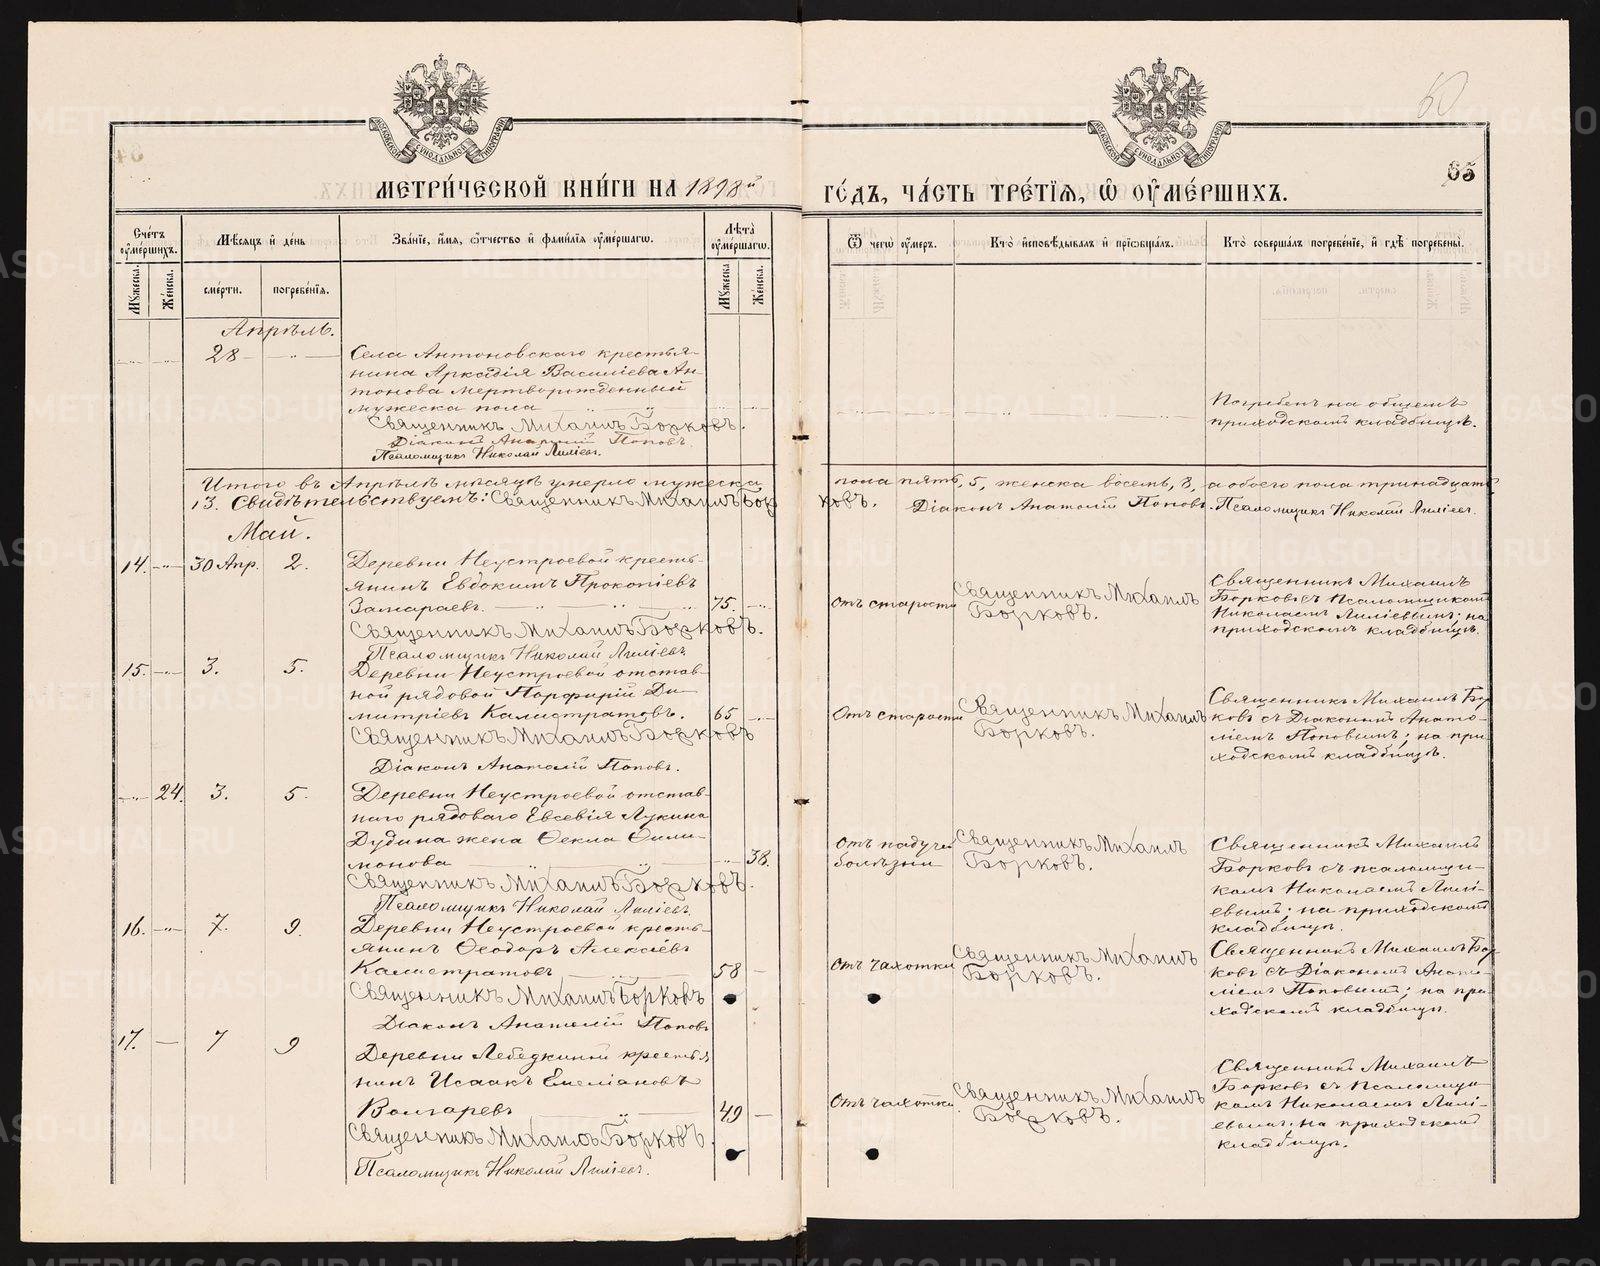 60
65
МОСКОВСКОЙ СѴНОДАЛЬНОЙ ТИПОГРАФІИ
МОСКОВСКОЙ СѴНОДАЛЬНОЙ ТИПОГРАФІИ
МЕТРИ́ЧЕСКОЙ КНИ́ГИ НА 1898й ГО́ДЪ, ЧА́СТЬ ТРЕ́ТІѦ, Ѡ҆ ОУ҆МЕ́РШИХЪ.
Сче́тъ оу҆ме́ршихъ.
Мѣ́сяцъ и҆ де́нь
Зва́нїе, и҆́мя, ѻ҆́тчество и҆ фами́лїя оу҆ме́ршагѡ.
Лѣ́та оу҆ме́ршагѡ.
Ѿ чегѡ̀ оу҆́меръ.
Кто̀ и҆сповѣ́дывалъ и҆ прїѡбща́лъ.
Кто̀ соверша́лъ погребе́нїе, и҆ гдѣ̀ погребены̀.
Мꙋ́жеска.
Же́нска.
сме́рти.
погребе́нїя.
Мꙋ́жеска.
Же́нска.
Апрѣль.
28
Села Антоновскаго крестья-
нина Аркадія Василіева Ан-
тонова мертворожденный
мужеска пола
Священникъ Михаилъ Борковъ.
Діаконъ Анатолій Поповъ.
Псаломщикъ Николай Лиліевъ.
Погребенъ на общемъ
приходскомъ кладбищѣ.
Итого въ Апрѣлѣ мѣсяцѣ умерло мужеска пола пять, 5, женска восемь, 8, а обоего пола тринадцать
13. Свидѣтельствуемъ: Священникъ Михаилъ Борковъ. Діаконъ Анатолій Поповъ. Псаломщикъ Николай Лиліевъ.
Май.
14. 30 Апр. 2.
Деревни Неустроевой кресть-
янинъ Евдокимъ Прокопіевъ
Замараевъ. 75.
Священникъ Михаилъ Борковъ.
Псаломщикъ Николай Лиліевъ
Отъ старости
Священникъ Михаилъ
Борковъ.
Священникъ Михаилъ
Борковъ съ Псаломщикомъ
Николаемъ Лиліевымъ; на
приходскомъ кладбищѣ.
15. 3. 5.
Деревни Неустроевой отстав-
ной рядовой Порфирій Ди-
митріевъ Калистратовъ. 65
Священникъ Михаилъ Борковъ
Діаконъ Анатолій Поповъ.
Отъ старости
Священникъ Михаилъ
Борковъ.
Священникъ Михаилъ Бор-
ковъ съ Діакономъ Анато-
ліемъ Поповымъ; на при-
ходскомъ кладбищѣ.
24. 3. 5.
Деревни Неустроевой отстав-
наго рядоваго Евсевія Лукина
Дудина жена Ѳекла Фили-
монова 38.
Священникъ Михаилъ Борковъ.
Псаломщикъ Николай Лиліевъ
Отъ падучей
болѣзни
Священникъ Михаилъ
Борковъ.
Священникъ Михаилъ
Борковъ съ псаломщи-
комъ Николаемъ Лилі-
евымъ; на приходскомъ
кладбищѣ.
16. 7. 9.
Деревни Неустроевой кресть-
янинъ Ѳеодоръ Алексіевъ
Калистратовъ 58
Священникъ Михаилъ Борковъ
Діаконъ Анатолій Поповъ
Отъ чахотки
Священникъ Михаилъ
Борковъ.
Священникъ Михаилъ Бор-
ковъ съ Діакономъ Анато-
ліемъ Поповымъ; на при-
ходскомъ кладбищѣ.
17. 7 9
Деревни Лебедкиной крестья-
нинъ Исаакъ Емеліановъ
Волгаревъ 49
Священникъ Михаилъ Борковъ.
Псаломщикъ Николай Лиліевъ.
Отъ чахотки.
Священникъ Михаилъ
Борковъ.
Священникъ Михаилъ
Борковъ съ Псаломщи-
комъ Николаемъ Лилі-
евымъ. на приходскомъ
кладбищѣ.
METRIKI.GASO-URAL.RU